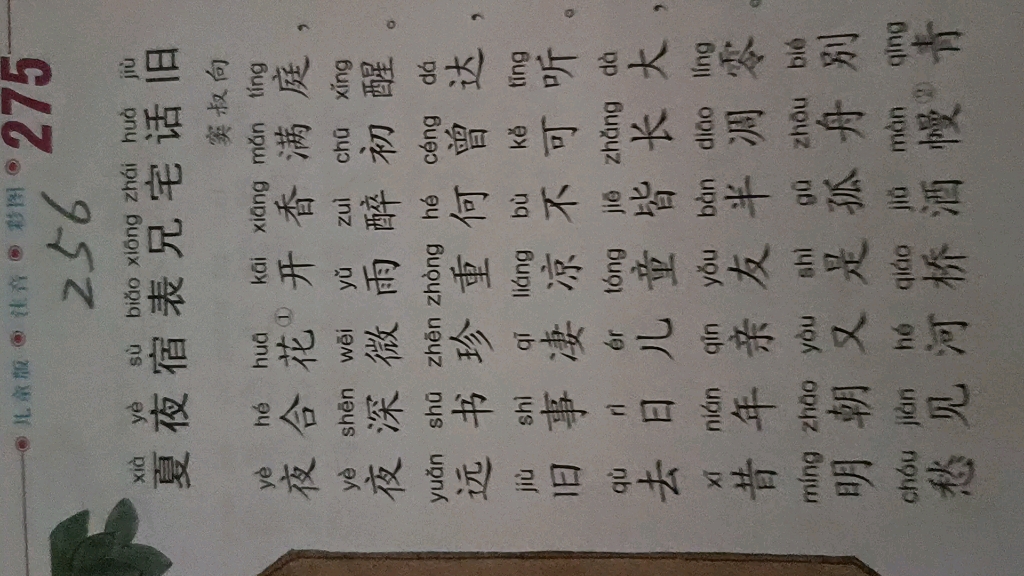 儿童版 注音 彩图 275
256
xià yè sù biǎo xiōng zhái huà jiù
夏夜宿表兄宅话旧
窦叔向
yè hé huā kāi xiāng mǎn tíng
夜合花①开香满庭，
yè shēn wēi yǔ zuì chū xǐng
夜深微雨醉初醒。
yuǎn shū zhēn zhòng hé céng dá
远书珍重何曾达，
jiù shì qī liáng bù kě tīng
旧事凄凉不可听。
qù rì ér tóng jiē zhǎng dà
去日儿童皆长大，
xī nián qīn yǒu bàn diāo líng
昔年亲友半凋零。
míng zhāo yòu shì gū zhōu bié
明朝又是孤舟别
chóu jiàn hé qiáo jiǔ màn qīng
愁见河桥酒幔②青